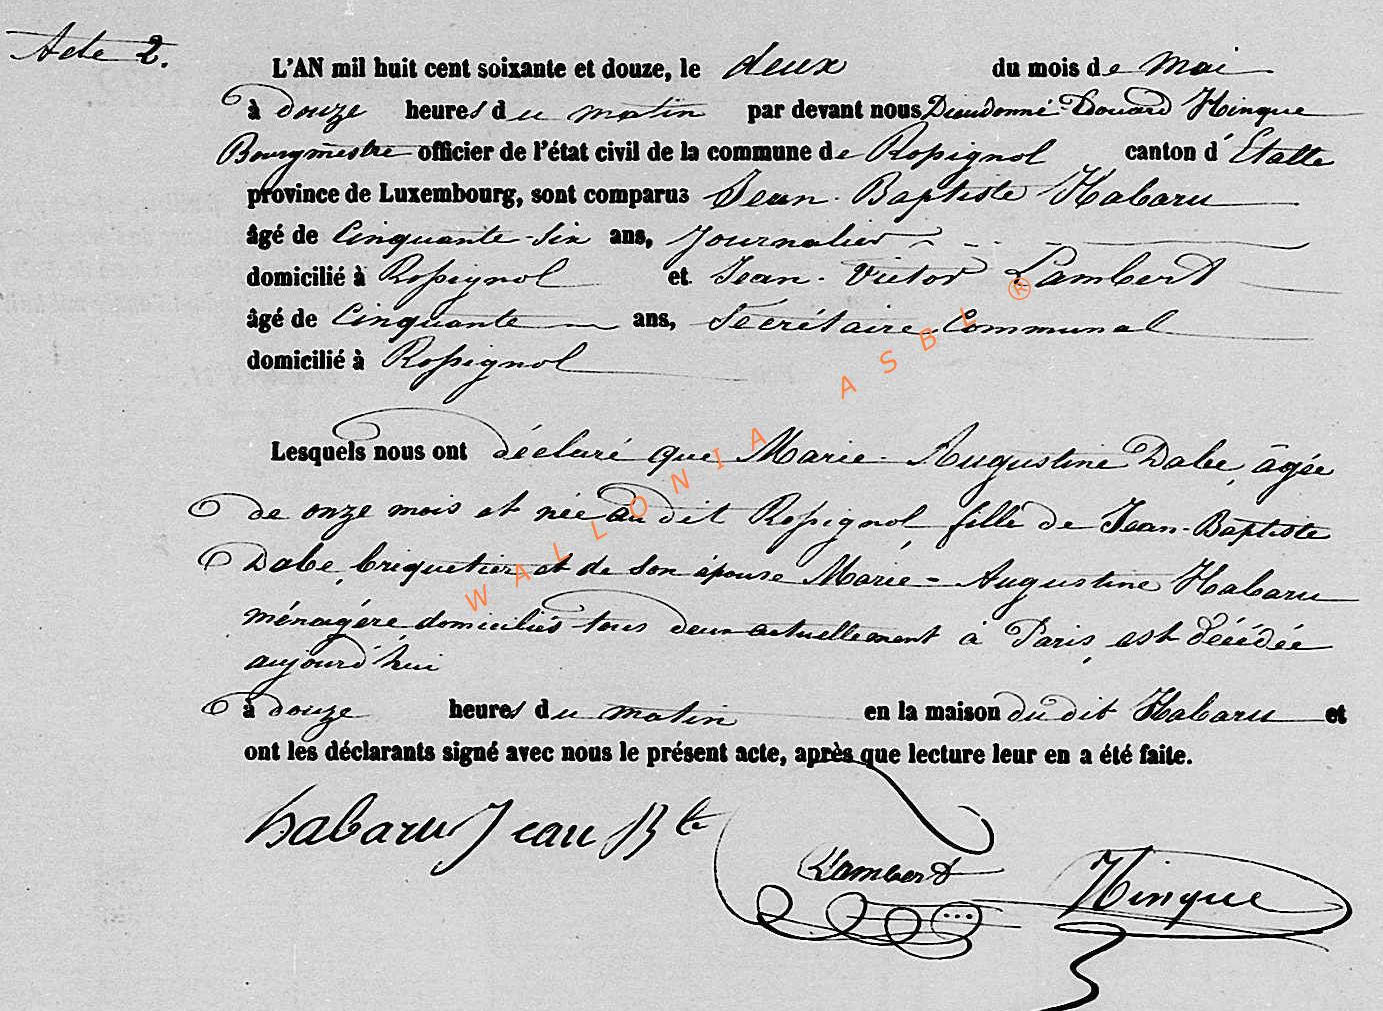 Acte 2.
L'AN mil huit cent soixante et douze, le deux du mois de mai
à douze heures du matin par devant nous Dieudonné-Edouard Hinque
Bourgmestre officier de l'état civil de la commune de Rossignol canton d'Etalle
province de Luxembourg, sont comparus Jean-Baptiste Habaru
âgé de Cinquante-six ans, Journalier
domicilié à Rossignol et Jean-Victor Lambert
âgé de Cinquante ans, Secrétaire Communal
domicilié à Rossignol
Lesquels nous ont déclaré que Marie-Augustine Dabe, âgée
de onze mois et née au dit Rossignol, fille de Jean-Baptiste
Dabe, briquetier et de son épouse Marie-Augustine Habaru
ménagère domiciliés tous deux actuellement à Paris, est décédée
aujourd'hui
à douze heures du matin en la maison du dit Habaru et
ont les déclarants signé avec nous le présent acte, après que lecture leur en a été faite.
habaru Jean Bte
Lambert Hinque
WALLONIA ASBL ®